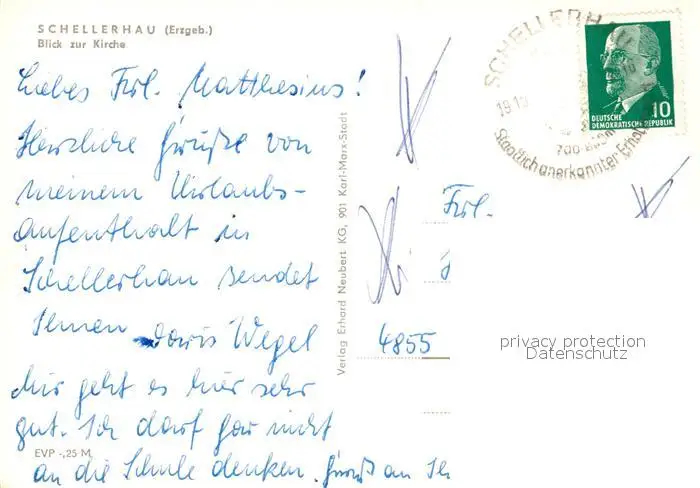 SCHELLERHAU (Erzgeb.)
Blick zur Kirche
Liebes Frl. Matthesius!
Herzliche Grüße von
meinem Urlaubs-
aufenthalt in
Schellerhau sendet
Ihnen Doris Wegel
Mir geht es hier sehr
gut. Ich darf gar nicht
an die Schule denken. Gruß an
EVP -,25 M
Verlag Erhard Neubert KG, 901 Karl-Marx-Stadt
SCHELLERHAU
Staatlich anerkannter
DEUTSCHE
DEMOKRATISCHE REPUBLIK
10
Frl.
4855
privacy protection
Datenschutz